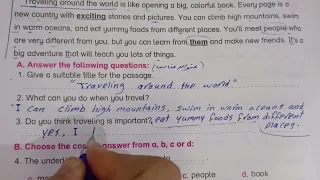 Traveling around the world is like opening a big, colorful book. Every page is a
new country with exciting stories and pictures. You can climb high mountains, swim
in worm oceans, and eat yummy foods from different places. You'll meet people who
are very different from you, but you can learn from them and make new friends. It's a
big adventure that will teach you lots of things.
A. Answer the following questions:
1. Give a suitable title for the passage.
"Traveling around the world"
2. What can you do when you travel?
"I can climb high mountains, swim in warm oceans and
3. Do you think traveling is important? eat yummy foods from different
yes, I places.
B. Choose the correct answer from a, b, c or d:
4. The underlin